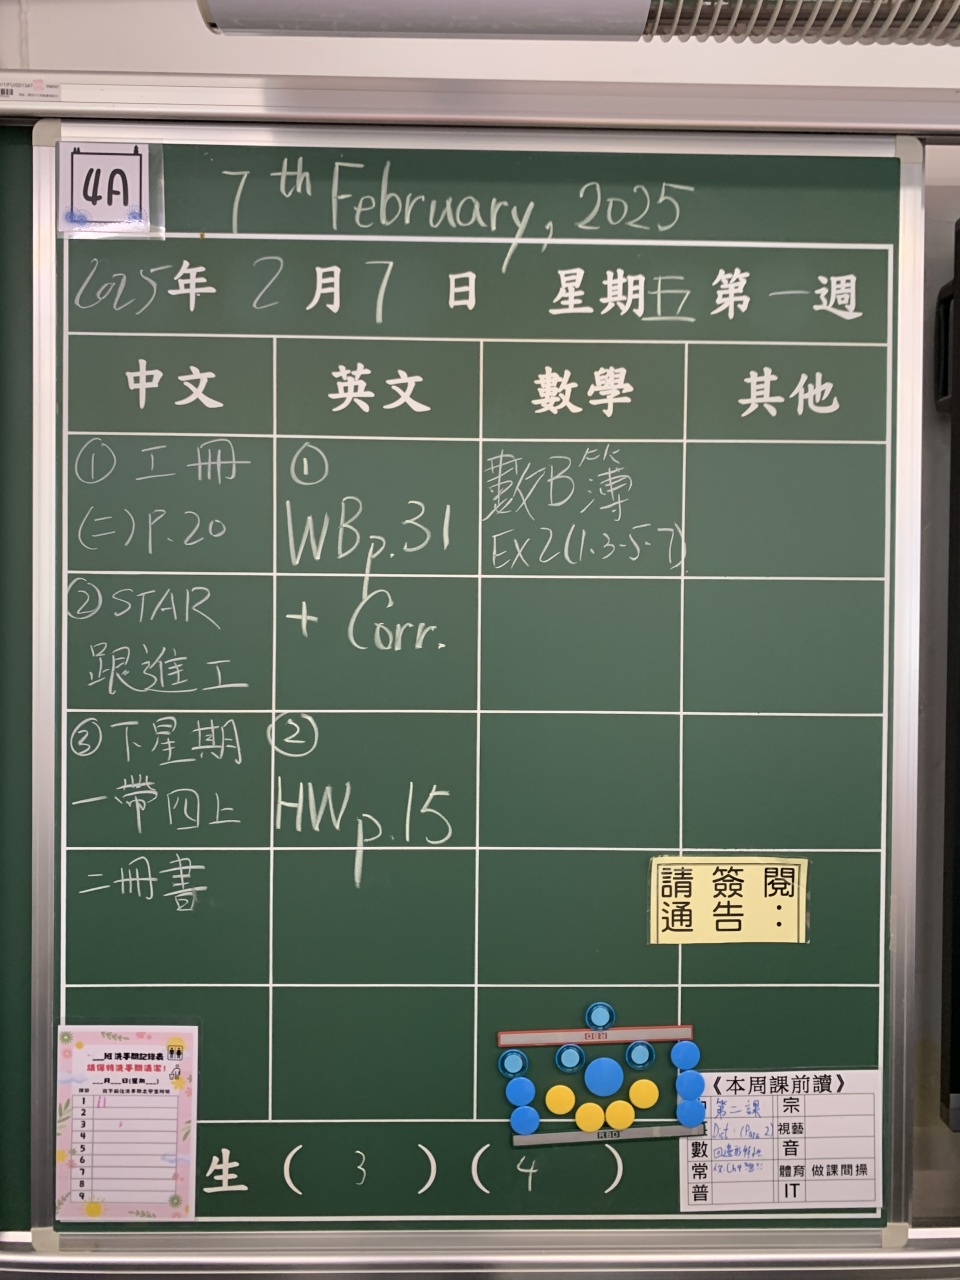 4A
7th February, 2025
2025年 2月7日 星期五 第一週
中文 英文 數學 其他
① 工冊
(二) P.20
② STAR
跟進工
③ 下星期
一帶四上
二冊書
①
WB p.31
+ Corr.
②
HW p.15
數B簿
EX2(1.3-5-7)
請簽閱
通告：
___班洗手間記錄表
請保持洗手間清潔！
___月___日(星期___)
1
2
3
4
5
6
7
8
9
生 ( 3 ) ( 4 )
RBD
RBD
《本周課前讀》
第二課 宗
Dict: (Para 2) 視藝
數 音
常 體育 做課間操
普 IT